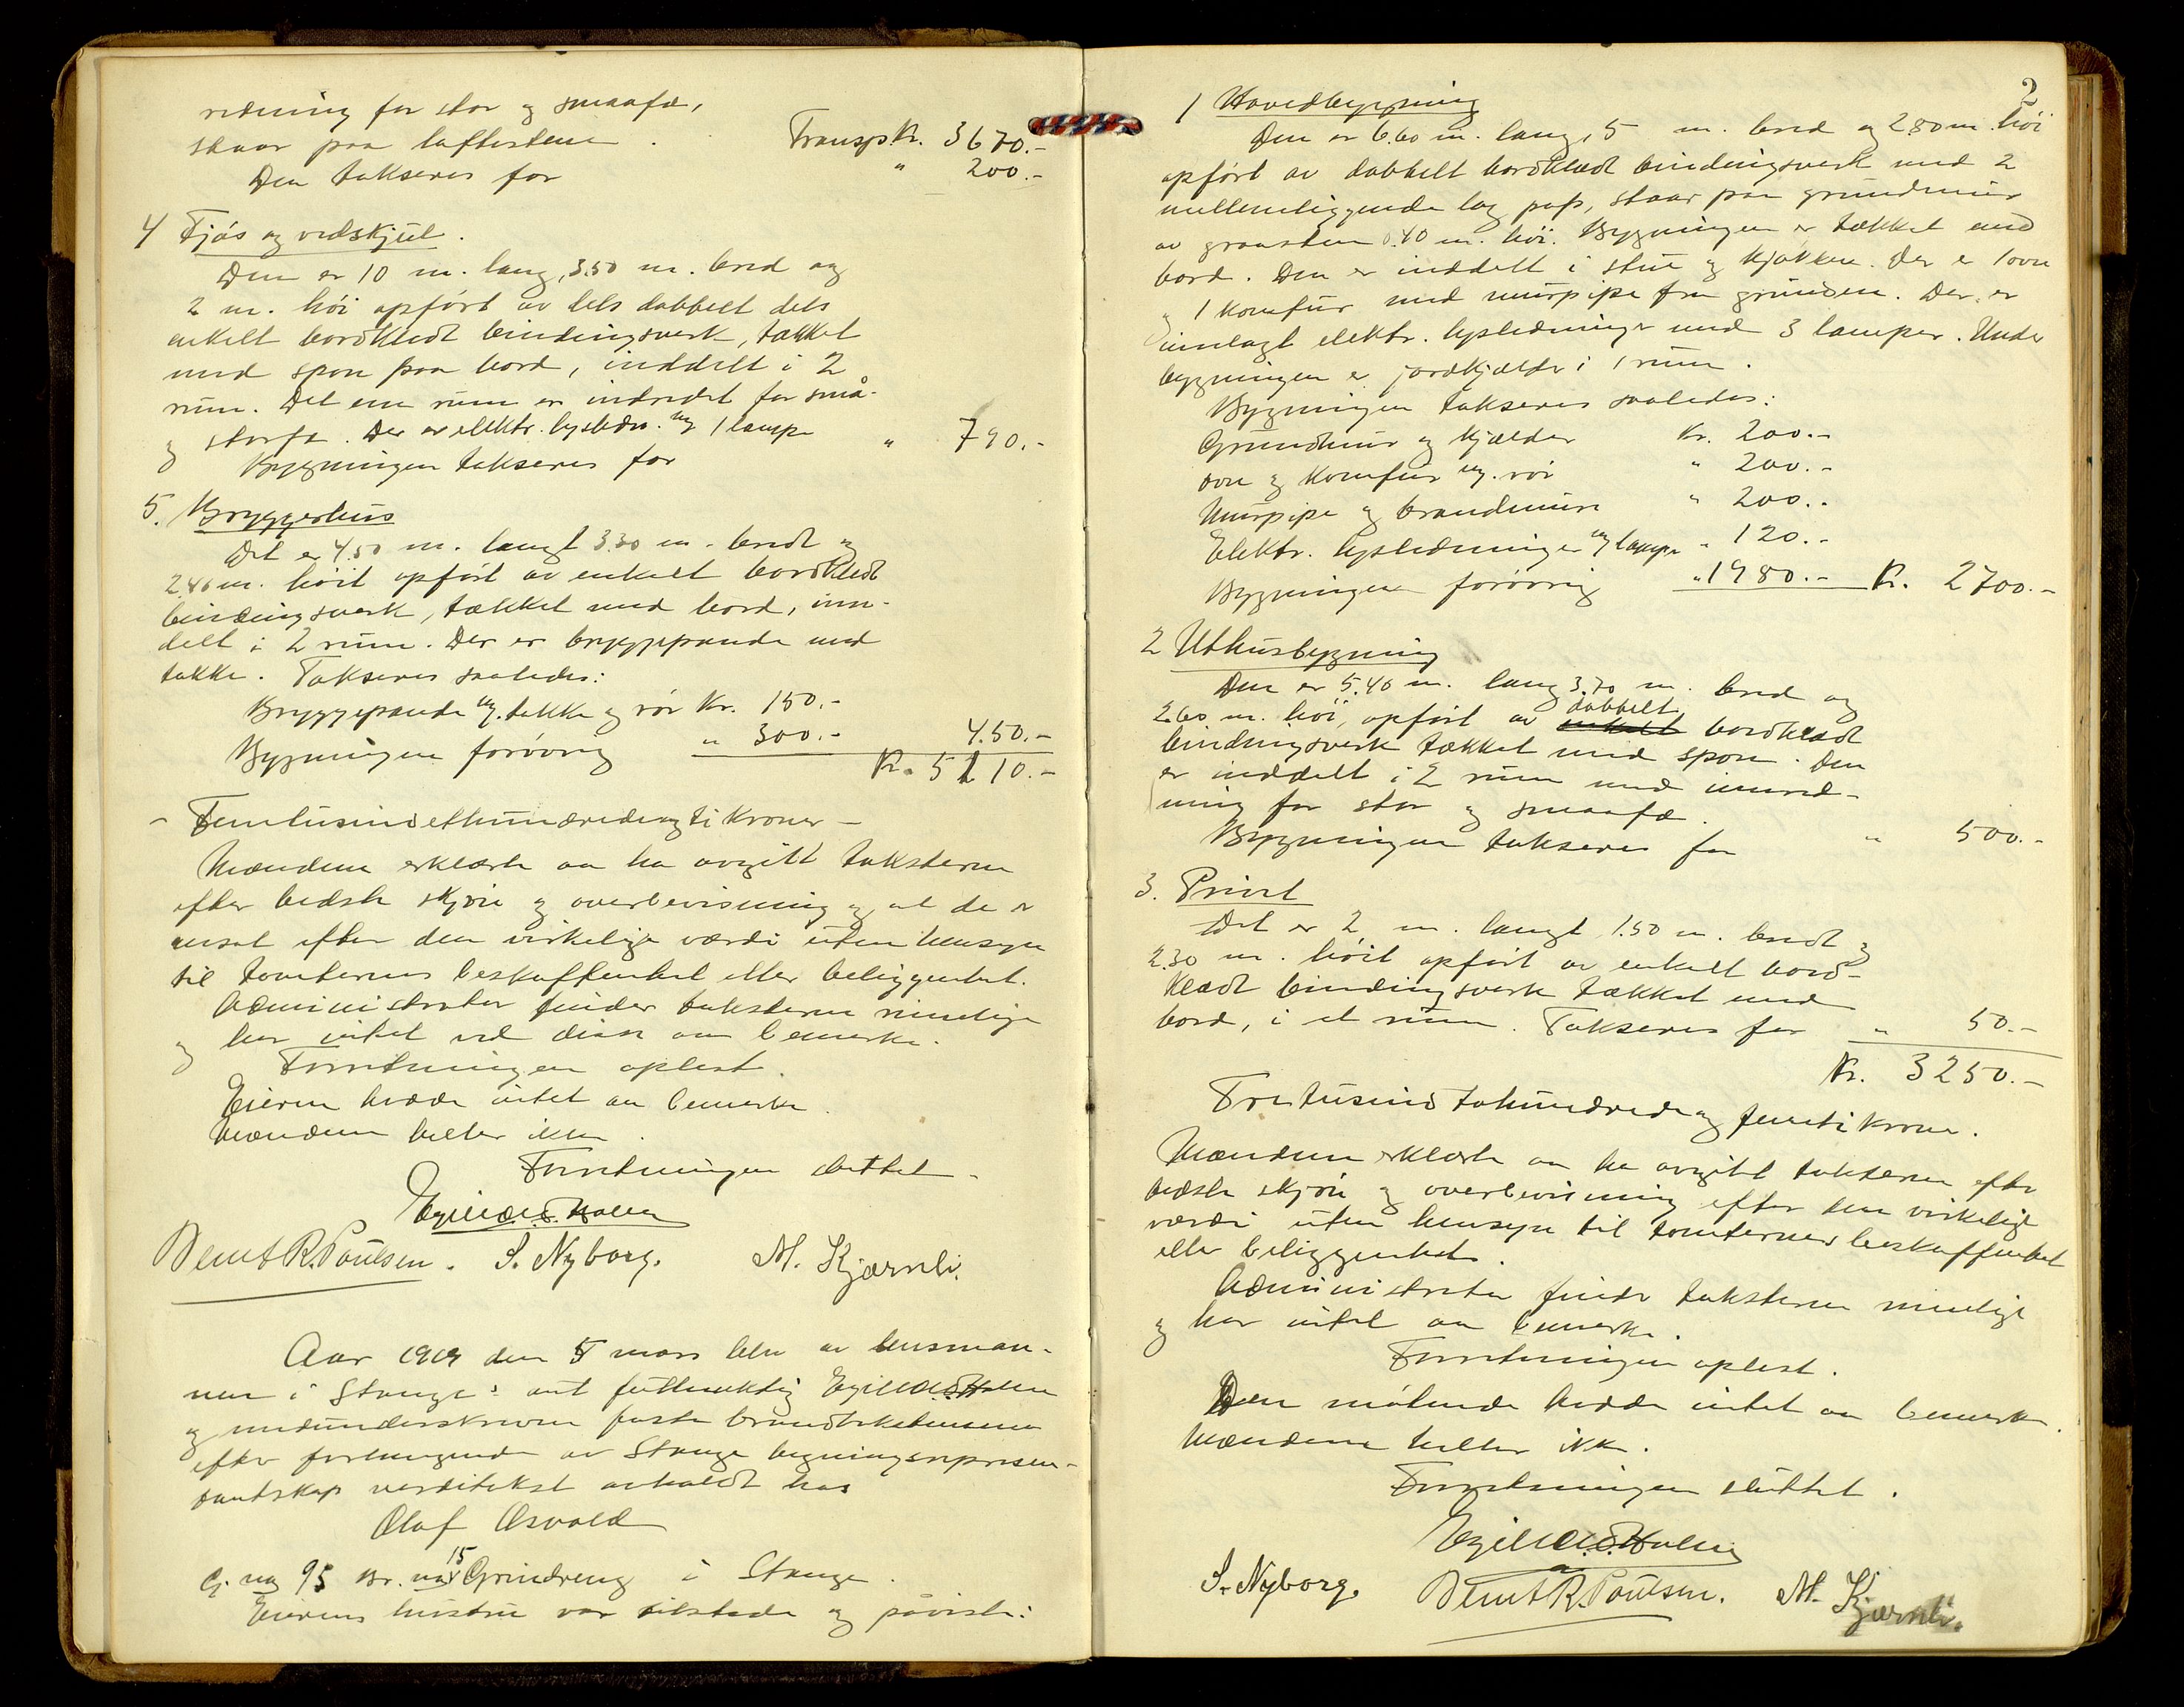 redning for stor og smaafæ,
staar paa løftestene. Transp. Kr. 3670.-
Den takseres for " 200.-
4 Fjøs og vedskjul.
Den er 10 m. lang, 3.50 m. bred og
2 m. høi opført av dels dobbelt dels
enkelt bordklædt bindingsverk, tækket
med spon paa bord, inddelt i 2
rum. Det ene rum er indredet for små-
og storfæ. Der er elektr. lysledn. m/ 1 lampe
Bygningen takseres for " 790.-
5. Bryggerhus
Det er 4.50 m. langt 3.30 m. bredt og
2.40 m. høit opført av enkelt bordklædt
bindingsverk, tækket med bord, inn-
delt i 2 rum. Der er bryggepande med
takke. Takseres saaledes:
Bryggepande m. takke og rør Kr. 150.-
Bygningen forøvrig " 300.- 4.50.-
Kr. 5110.-
- Femtusindethundredeogti kroner -
Mændene erklærte aa ha avgitt taksterne
efter bedste skjøn og overbevisning og at de er
ansat efter den virkelige værdi uten hensyn
til tomternes beskaffenhet eller beliggenhet.
Administrator finder taksterne rimelige
og har intet ved disse aa bemerke.
Forretningen oplest.
Eieren hadde intet aa bemerke.
Mændene heller ikke.
Forretningen sluttet.
Egil A. S. Holen
Bernt R. Poulsen. S. Nyborg. M. Kjærnli.
Aar 1919 den 5 mars blev av lensman-
nen i Stange's aut fuldmektig Egil A. S. Holen
og medunderskrevne faste brandtakstmænd
efter forlangende av Stange bygningsreprsen-
santskap verditakst avholdt hos
Olaf Osvold
Gj. no 95 Br. no 15 Grindreng i Stange.
Eierens hustru var tilstede og påviste:
2
1 Hovedbygning
Den er 6.60 m. lang, 5 m. bred og 2.80 m. høi
opført av dobbelt bordklædt bindingsverk med 2
mellemliggende lag pap, staar paa grundmur
av graasten 0.40 m. høi. Bygningen er tækket med
bord. Den er inddelt i stue og kjøkken. Der er 1 ovn
og 1 komfur med murpipe fra grunden. Der er
innlagt elektr. lysledninger med 3 lamper. Under
bygningen er jordkjælder i 1 rum.
Bygningen takseres saaledes:
Grundmur og kjælder Kr. 200.-
ovn og komfur m. rør " 200.-
Murpipe og brandmure " 200.-
Elektr. lysledninger m/ lampe " 120.-
Bygningen forøvrig " 1980.- Kr. 2700.-
2 Uthusbygning
Den er 5.40 m. lang 3.70 m. bred og
2.60 m. høi, opført av enkelt dobbelt bordklædt
bindingsverk tækket med spon. Den
er inddelt i 2 rum med innred-
ning for stor og smaafæ.
Bygningen takseres for " 500.-
3. Privet
Det er 2 m. langt 1.50 m. bredt og
2.30 m. høit opført av enkelt bord-
klædt bindingsverk tækket med
bord, i et rum. Takseres for " 50.-
Kr. 3250.-
Tretusind tohundrede og femti kroner.
Mændene erklærte aa ha avgitt taksterne efter
bedste skjøn og overbevisning efter den virkelige
værdi uten hensyn til tomternes beskaffenhet
eller beliggenhet.
Administrator finder taksterne rimelige
og har intet aa bemerke.
Forretningen oplest.
Den møtende hadde intet aa bemerke.
Mændene heller ikke.
Forretningen sluttet.
Egil A. S. Holen
S. Nyborg. Bernt R. Poulsen. M. Kjærnli.